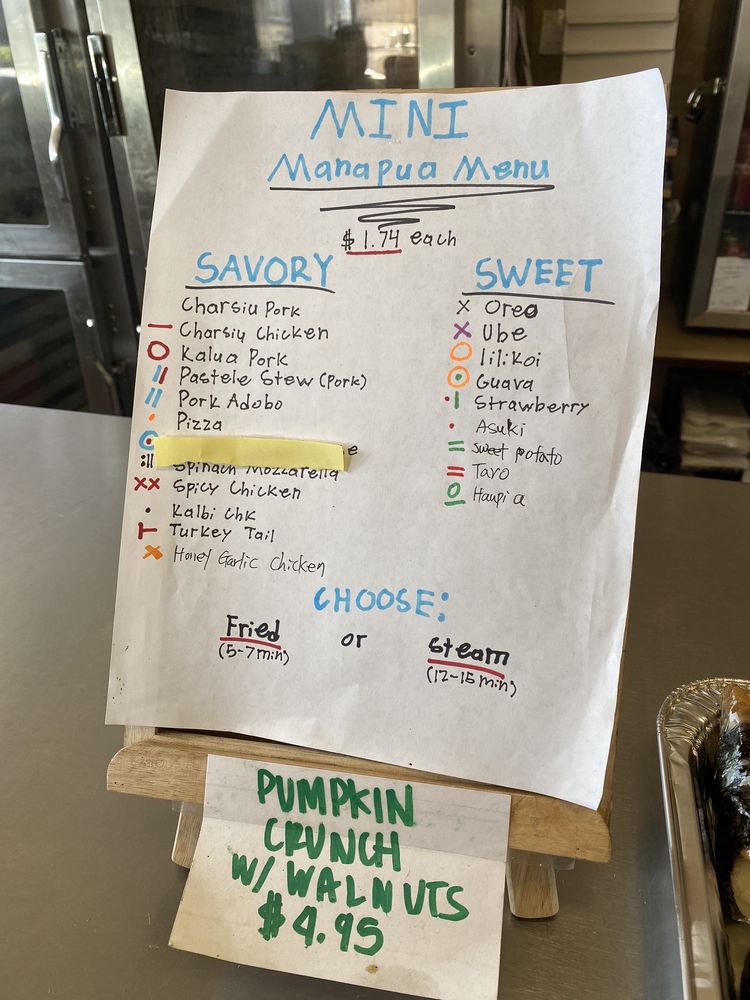 MINI
Manapua Menu
$1.74 each
SAVORY
Charsiu Pork
Charsiu Chicken
Kalua Pork
Pastele Stew (Pork)
Pork Adobo
Pizza
e
Spinach Mozzarella
Spicy Chicken
Kalbi Chk
Turkey Tail
Honey Garlic Chicken
SWEET
Oreo
Ube
lilikoi
Guava
Strawberry
Asuki
sweet potato
Taro
Haupia
CHOOSE:
Fried or Steam
(5-7min) (12-15min)
PUMPKIN
CRUNCH
W/ WALNUTS
$4.95